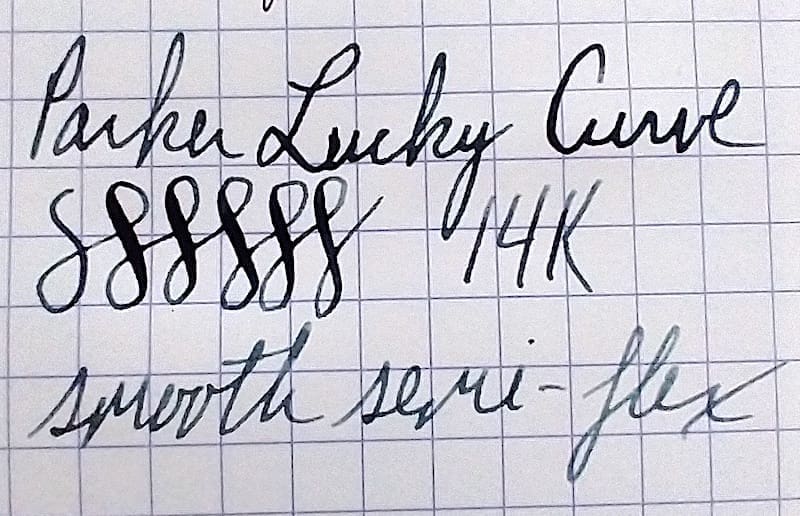 Parker Lucky Curve
14K
smooth semi-flex